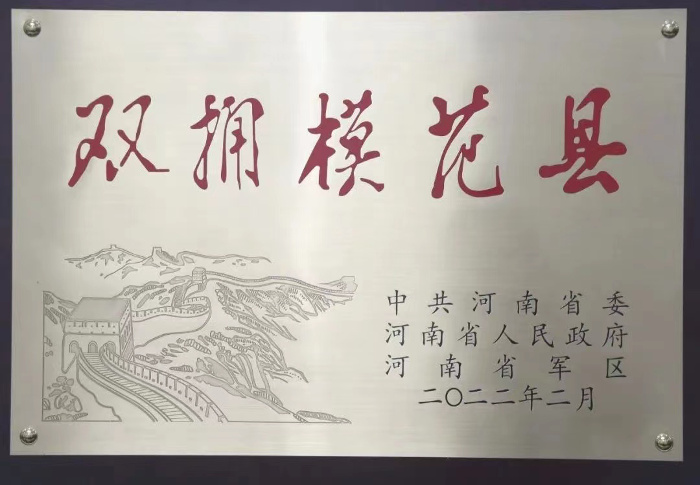 双拥模范县
中共河南省委
河南省人民政府
河南省军区
二〇二二年二月